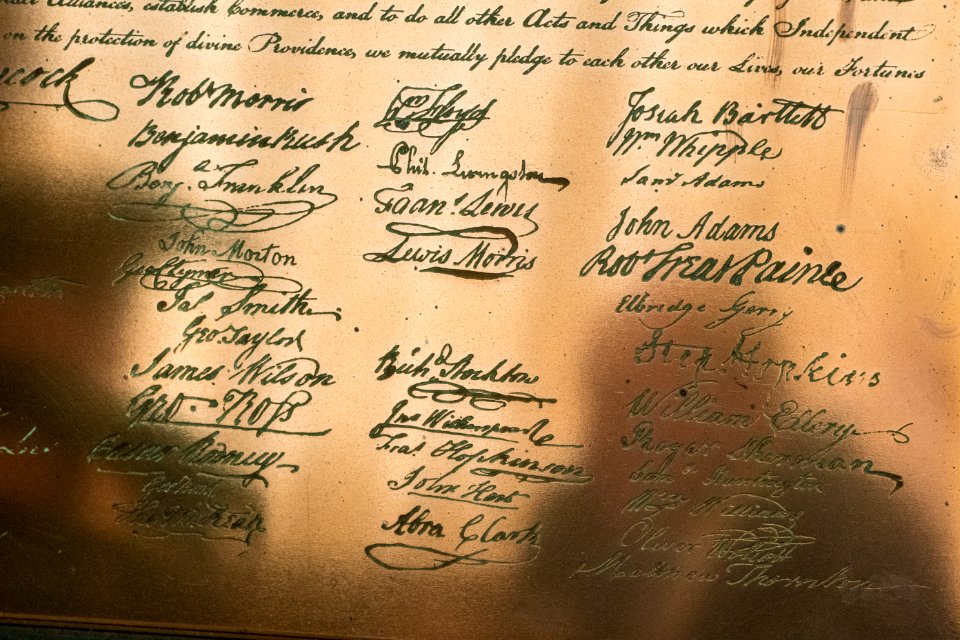 Alliances, establish Commerce, and to do all other Acts and Things which Independent
on the protection of divine Providence, we mutually pledge to each other our Lives, our Fortunes
Robt Morris
Benjamin Rush
Benja. Franklin
John Morton
Geo Clymer
Jas. Smith.
Geo. Taylor
James Wilson
Geo. Ross
Caesar Rodney
Geo Read
Tho M:Kean
Wm Floyd
Phil. Livingston
Frans. Lewis
Lewis Morris
Richd. Stockton
Jno Witherspoon
Fras. Hopkinson
John Hart
Abra Clark
Josiah Bartlett
Wm. Whipple
Saml Adams
John Adams
Robt Treat Paine
Elbridge Gerry
Step. Hopkins
William Ellery
Roger Sherman
Saml Huntington
Wm. Williams
Oliver Wolcott
Matthew Thornton